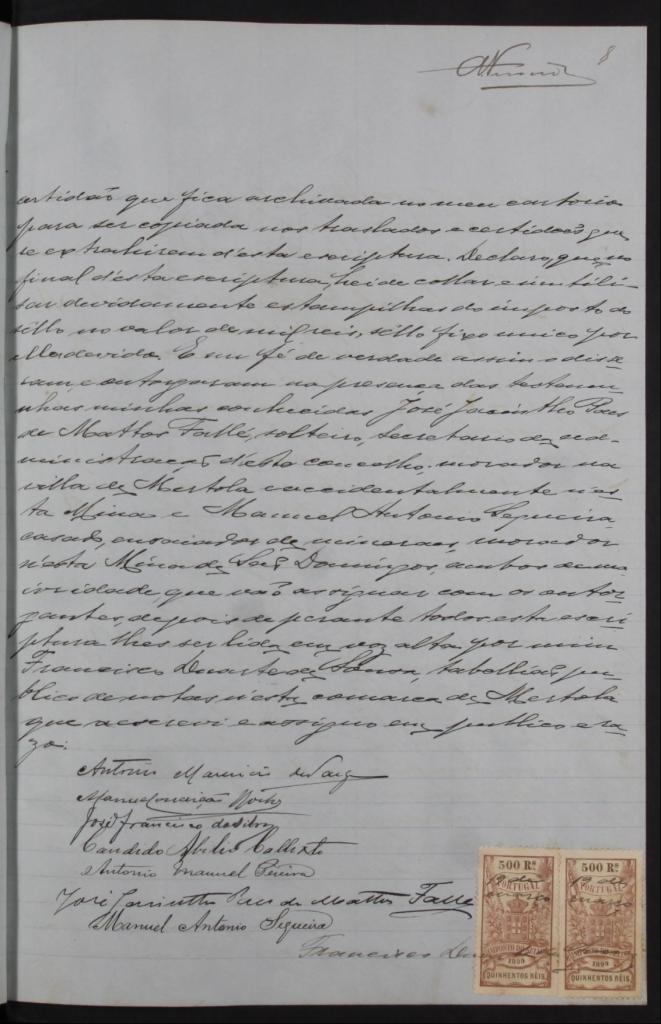 8
ertidão que fica archivada no meu cartorio
para ser copiada nos traslados e certidões que
se extrahirem d'esta escriptura. Declaro, que, no
final d'esta escriptura, hei de collar e inutili-
sar devidamente estampilhas do imposto do
sêllo no valor de mil reis, sêllo fixo unico por
ella devido. E em fé de verdade assim o disse-
ram, e outorgaram na presença das testemu-
nhas minhas conhecidas José Jacintho Paes
de Mattos Fallé, solteiro, secretario da ad-
ministração d'este concelho, morador na
villa de Mertola e accidentalmente n'es-
ta Mina e Manuel Antonio Sequeira
casado, ensaiador de mineraes, morador
n'esta Mina de São Domingos, ambos de ma-
ioridade que vão assignar com os outor-
gantes, depois de perante todos esta escri-
ptura lhes ser lida em voz alta por mim
Francisco Duarte de Sousa, tabellião pu-
blico de notas n'esta comarca de Mertola
que a escrevi e assigno em publico e ra-
zo.
Antonio
Manuel
José Francisco da Silva
Candido Abilio Calixto
Antonio Manuel Pereira
José Jacintho Paes de Mattos Fallé
Manuel Antonio Sequeira
Francisco Duarte de Sousa
500 Rs. 500 Rs.
19 de março 19 de março
PORTUGAL PORTUGAL
IMPOSTO DO SELLO IMPOSTO DO SELLO
1899 1899
QUINHENTOS RÉIS QUINHENTOS RÉIS